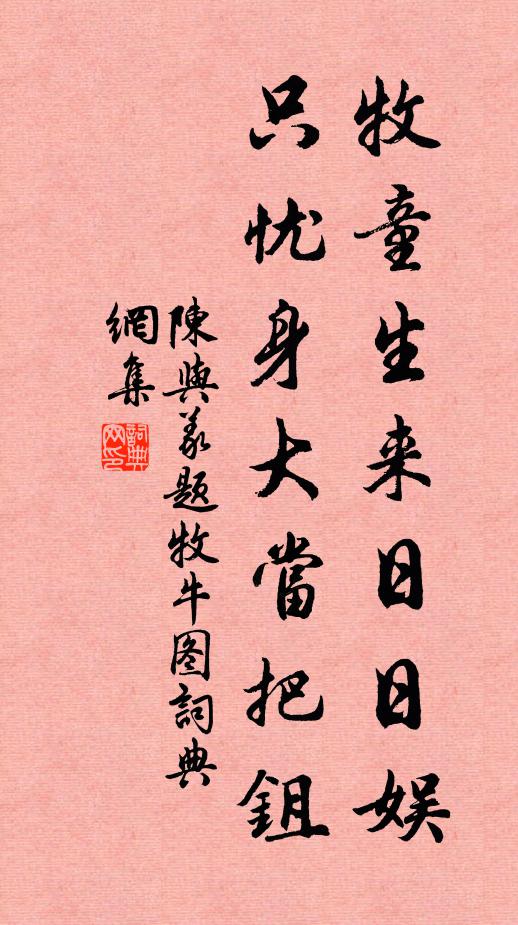 牧童生来日日娱
只忧身大當把鉏
陳與义題牧牛图詞典
網集
詞典网印